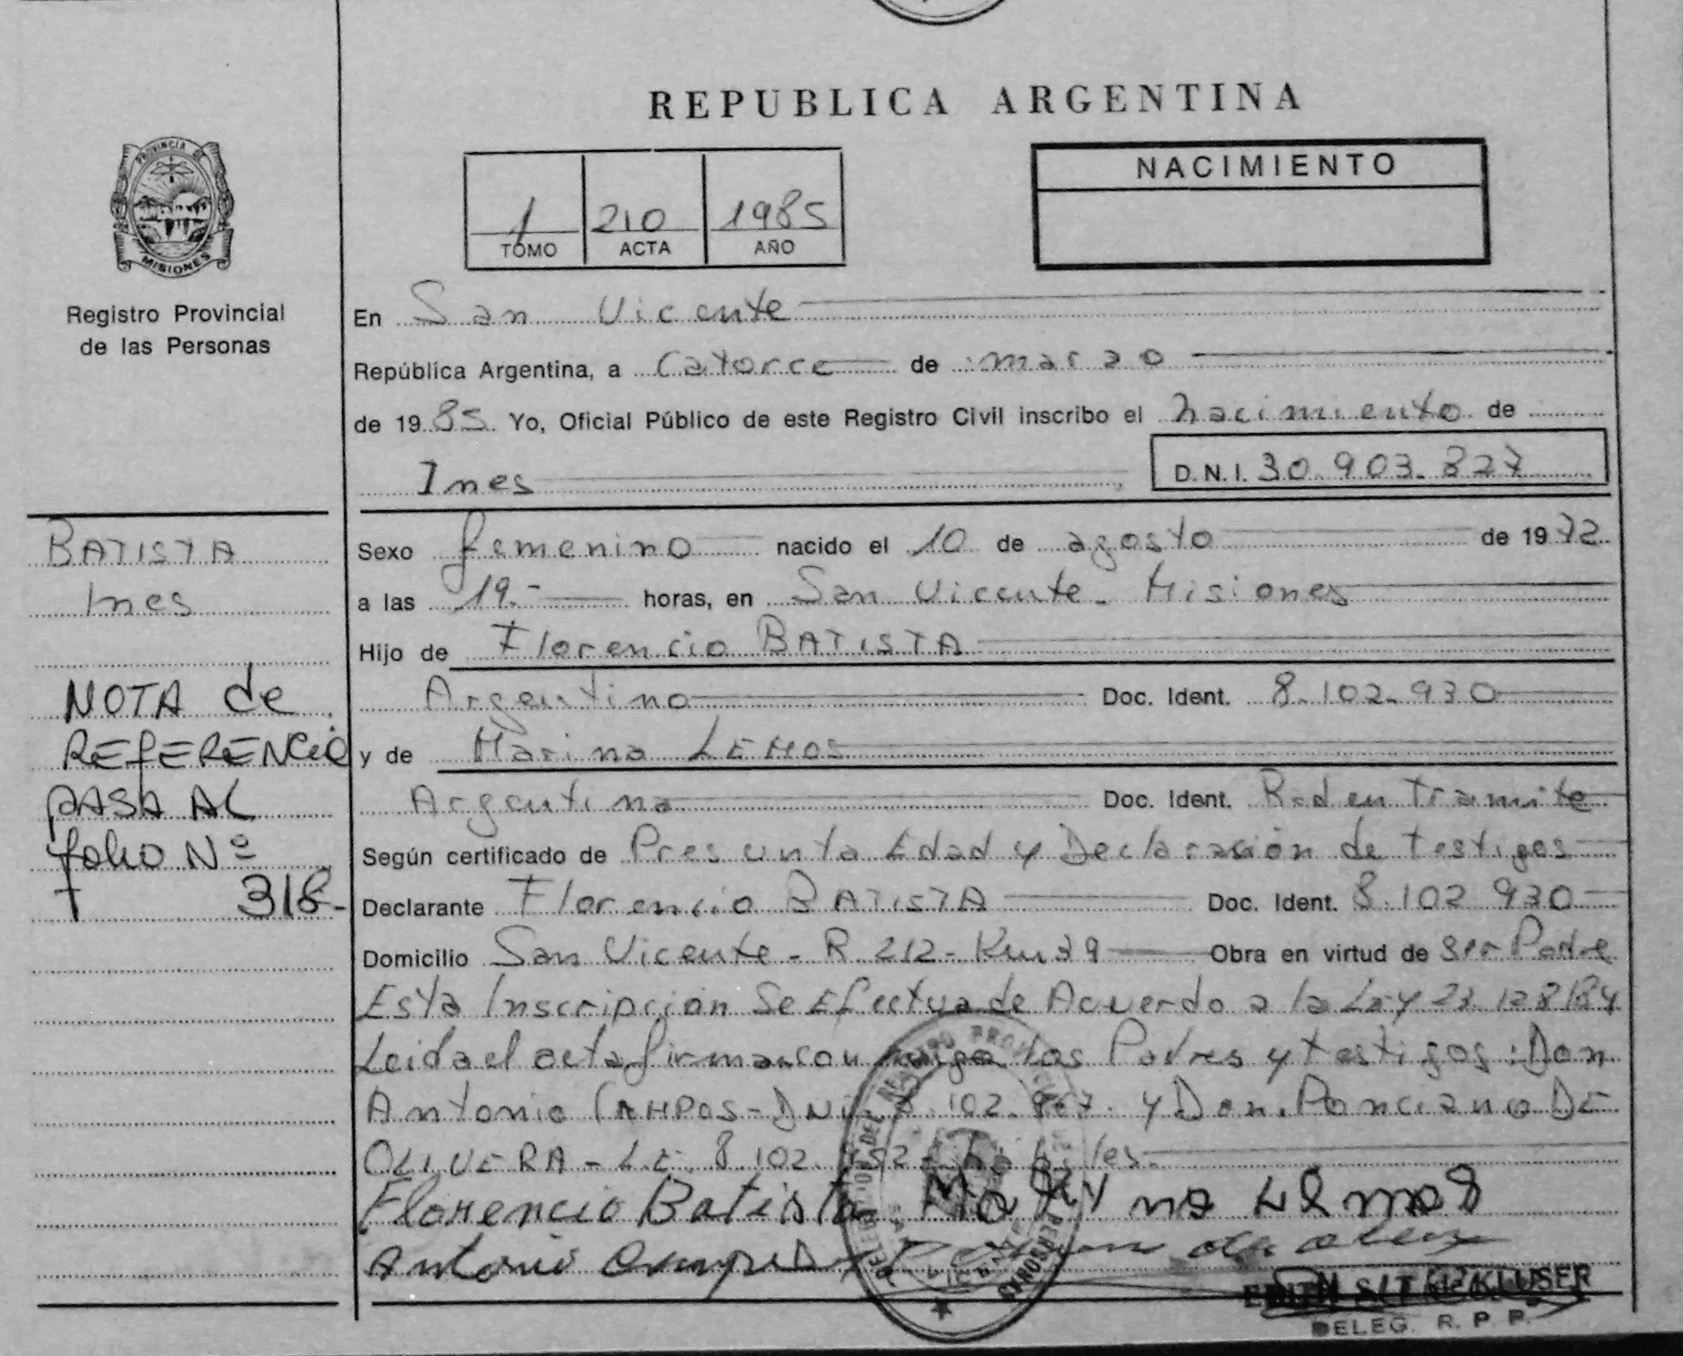 REPUBLICA ARGENTINA
PROVINCIA DE
MISIONES
Registro Provincial
de las Personas
1 210 1985
TOMO ACTA AÑO
NACIMIENTO
En San Vicente
República Argentina, a Catorce de marzo
de 1985 Yo, Oficial Público de este Registro Civil inscribo el nacimiento de
Ines D.N.I. 30.903.827
BATISTA
Ines
NOTA de
REFERENCIA
PASA AL
folio Nº
318-
Sexo femenino nacido el 10 de agosto de 1972
a las 19.- horas, en San Vicente - Misiones
Hijo de Florencio BATISTA
Argentino Doc. Ident. 8.102.930
y de Marina LEMOS
Argentina Doc. Ident. Rad en Tramite
Según certificado de Presunta Edad y Declaración de testigos
Declarante Florencio BATISTA Doc. Ident. 8.102.930
Domicilio San Vicente - R 212 - Km 39 Obra en virtud de ser Padre
Esta Inscripción Se Efectua de Acuerdo a la Ley 23.128/84
Leida el acta firman con migo los Padres y testigos: Don
Antonio CAMPOS - DNI. 8.102. y Don. Ponciano DE
OLIVERA - L.E. 8.102. habiles.
Florencio Batista Maryna Lemos
Antonio Campos
EDITH KLUSER
DELEG. R. P. P.